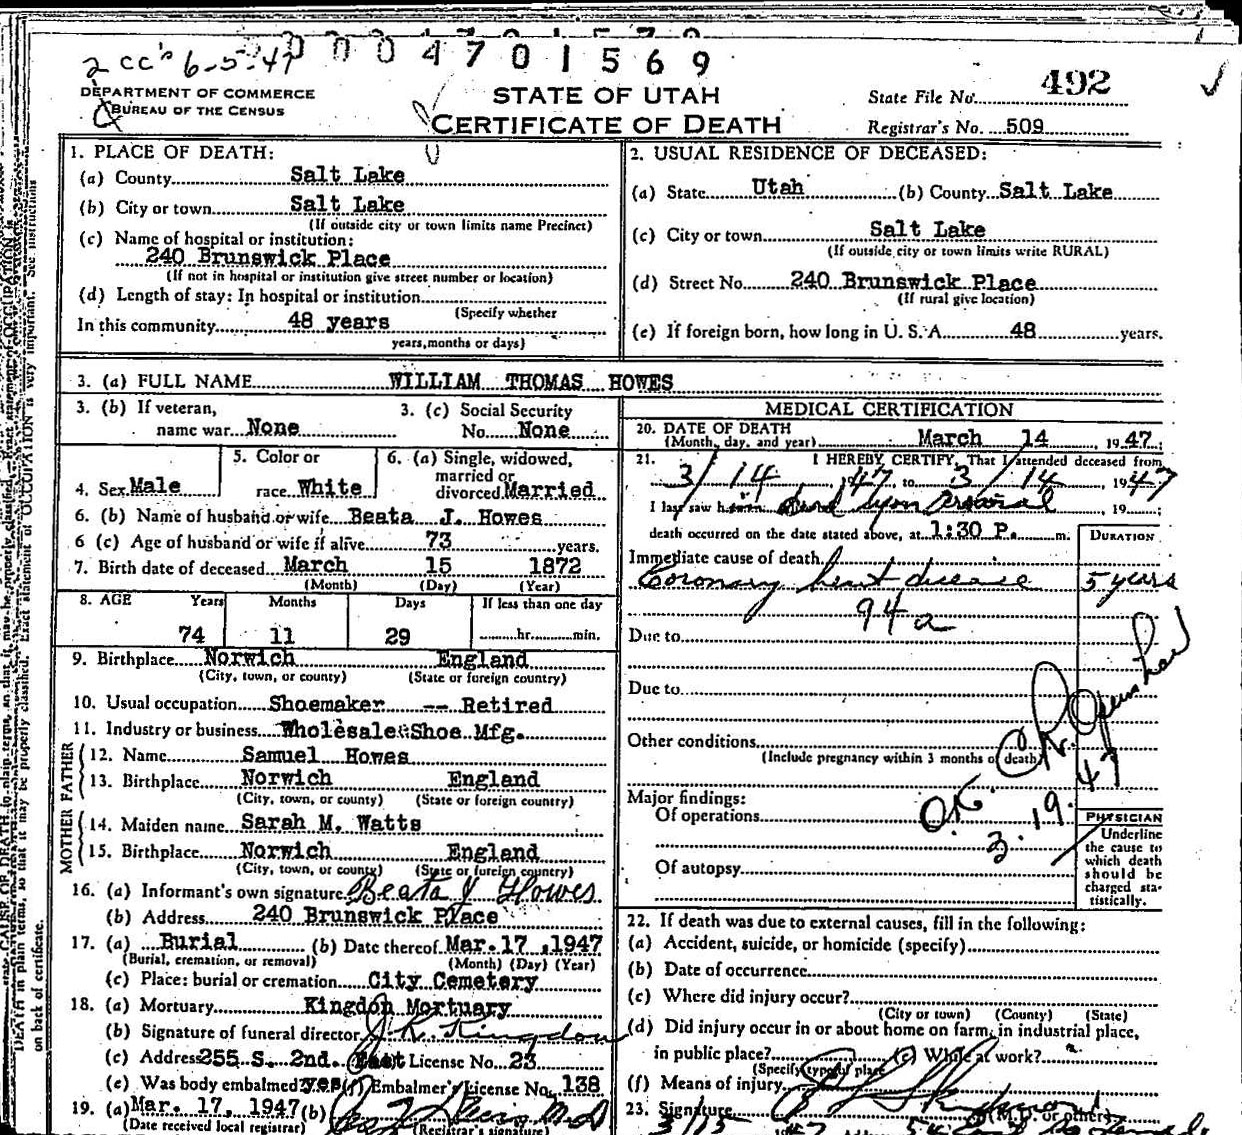 2 CC's 6-5-47
0004701569
DEPARTMENT OF COMMERCE
BUREAU OF THE CENSUS
STATE OF UTAH
CERTIFICATE OF DEATH
State File No. 492
Registrar's No. 509
1. PLACE OF DEATH:
(a) County Salt Lake
(b) City or town Salt Lake
(If outside city or town limits name Precinct)
(c) Name of hospital or institution:
240 Brunswick Place
(If not in hospital or institution give street number or location)
(d) Length of stay: In hospital or institution
(Specify whether
In this community 48 years
years, months or days)
2. USUAL RESIDENCE OF DECEASED:
(a) State Utah (b) County Salt Lake
(c) City or town Salt Lake
(If outside city or town limits write RURAL)
(d) Street No. 240 Brunswick Place
(If rural give location)
(e) If foreign born, how long in U. S. A. 48 years.
3. (a) FULL NAME WILLIAM THOMAS HOWES
3. (b) If veteran, 3. (c) Social Security
name war None No. None
5. Color or 6. (a) Single, widowed,
married or
4. Sex Male race White divorced Married
6. (b) Name of husband or wife Beata J. Howes
6 (c) Age of husband or wife if alive 73 years.
7. Birth date of deceased March 15 1872
(Month) (Day) (Year)
8. AGE Years Months Days If less than one day
74 11 29 hr. min.
9. Birthplace Norwich England
(City, town, or county) (State or foreign country)
10. Usual occupation Shoemaker -- Retired
11. Industry or business Wholesale Shoe Mfg.
FATHER
12. Name Samuel Howes
13. Birthplace Norwich England
(City, town, or county) (State or foreign country)
MOTHER
14. Maiden name Sarah M. Watts
15. Birthplace Norwich England
(City, town, or county) (State or foreign country)
16. (a) Informant's own signature Beata J Howes
(b) Address 240 Brunswick Place
17. (a) Burial (b) Date thereof Mar. 17, 1947
(Burial, cremation, or removal) (Month) (Day) (Year)
(c) Place: burial or cremation City Cemetery
18. (a) Mortuary Kingdon Mortuary
(b) Signature of funeral director J. R. Kingdon
(c) Address 255 S. 2nd. East License No. 23
(e) Was body embalmed yes (f) Embalmer's License No. 138
19. (a) Mar. 17, 1947 (b)
(Date received local registrar) (Registrar's signature)
MEDICAL CERTIFICATION
20. DATE OF DEATH
(Month, day, and year) March 14 1947;
21. I HEREBY CERTIFY, That I attended deceased from
3/14, 1947, to 3/14, 1947
I last saw h Dead upon arrival, 19 ;
death occurred on the date stated above, at 1:30 P. m.
DURATION
Immediate cause of death
Coronary heart disease 5 years
94a
Due to
Due to
Other conditions
(Include pregnancy within 3 months of death)
Major findings:
Of operations
Of autopsy
O.K.
3.19.47
PHYSICIAN
Underline
the cause to
which death
should be
charged sta-
tistically.
22. If death was due to external causes, fill in the following:
(a) Accident, suicide, or homicide (specify)
(b) Date of occurrence
(c) Where did injury occur?
(City or town) (County) (State)
(d) Did injury occur in or about home on farm, in industrial place,
in public place? (e) While at work?
(Specify type of place
(f) Means of injury
23. Signature (M.D. or other)
3/15 47
on back of certificate.